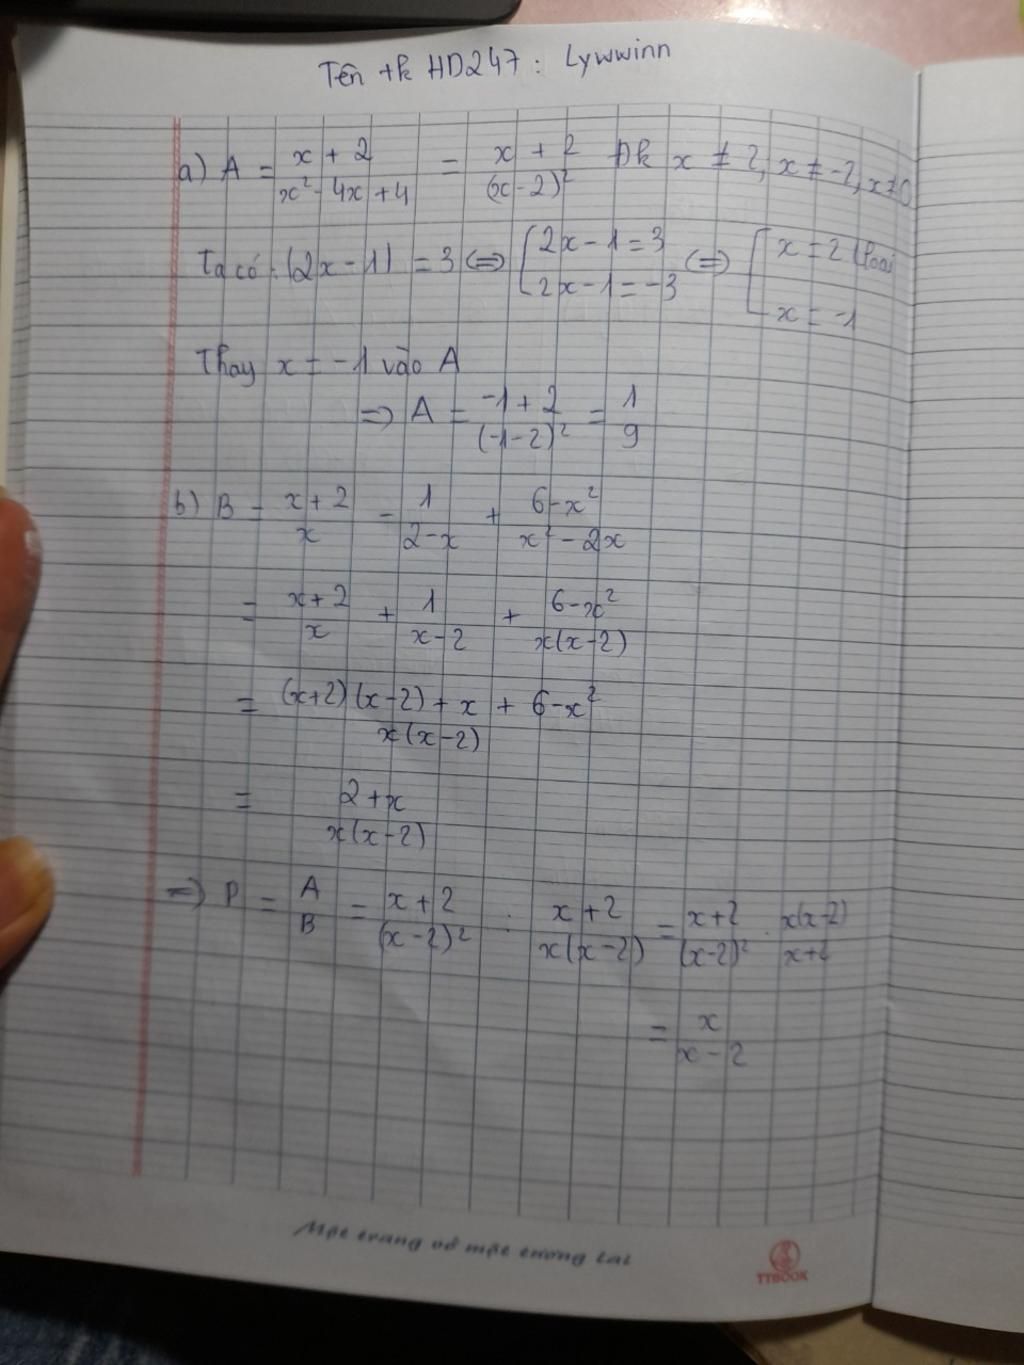 Tên tk HD247: Lywwinn
a) A = (x + 2)/(x² - 4x + 4) = (x + 2)/(x - 2)² Đk x ≠ 2, x ≠ -2, x ≠ 0
Ta có: |2x - 1| = 3 <=> [2x - 1 = 3; 2x - 1 = -3 <=> [x = 2 (loại; x = -1
Thay x = -1 vào A
=> A = (-1 + 2)/(-1 - 2)² = 1/9
b) B = (x + 2)/x - 1/(2 - x) + (6 - x²)/(x² - 2x)
= (x + 2)/x + 1/(x - 2) + (6 - x²)/(x(x - 2))
= ((x+2)(x - 2) + x + 6 - x²)/(x(x - 2))
= (2 + x)/(x(x - 2))
=> P = A/B = (x + 2)/(x - 2)² : (x + 2)/(x(x - 2)) = (x + 2)/(x - 2)² . x(x - 2)/(x + 2)
= x/(x - 2)
Một trang vở một tương lai
TTBOOK